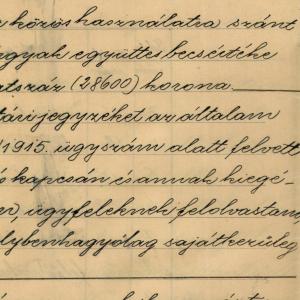 közös használatra szánt
tárgyak együttes becsértéke
hatszáz (28600) korona
tári jegyzéket az általam
1915. ügyszám alatt felvett
kapcsán és annak kiegé-
ügyfeleknek felolvastam,
helybenhagyólag sajátkezüleg